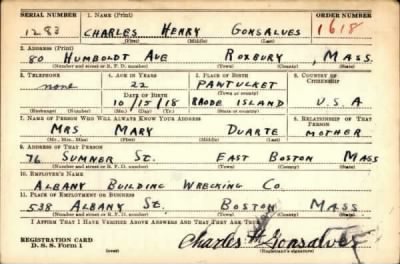 SERIAL NUMBER 1. NAME (Print) ORDER NUMBER
1283 CHARLES HENRY GONSALVES 1618
(First) (Middle) (Last)
2. ADDRESS (Print)
80 HUMBOLT AVE ROXBURY, MASS.
(Number and street or R. F. D. number) (Town) (County) (State)
3. TELEPHONE 4. AGE IN YEARS 5. PLACE OF BIRTH 6. COUNTRY OF CITIZENSHIP
none 22 PAWTUCKET
DATE OF BIRTH (Town or county)
10/15/18 RHODE ISLAND U.S.A
(Exchange) (Number) (Mo.) (Day) (Yr.) (State or country)
7. NAME OF PERSON WHO WILL ALWAYS KNOW YOUR ADDRESS 8. RELATIONSHIP OF THAT PERSON
MRS MARY DUARTE MOTHER
(Mr., Mrs., Miss) (First) (Middle) (Last)
9. ADDRESS OF THAT PERSON
76 SUMNER ST. EAST BOSTON MASS
(Number and street or R. F. D. number) (Town) (County) (State)
10. EMPLOYER'S NAME
ALBANY BUILDING WRECKING CO.
11. PLACE OF EMPLOYMENT OR BUSINESS
538 ALBANY ST. BOSTON MASS
(Number and street or R. F. D. number) (Town) (County) (State)
I AFFIRM THAT I HAVE VERIFIED ABOVE ANSWERS AND THAT THEY ARE TRUE.
REGISTRATION CARD
D. S. S. Form 1 (over) Charles H. Gonsalves
(Registrant's signature)